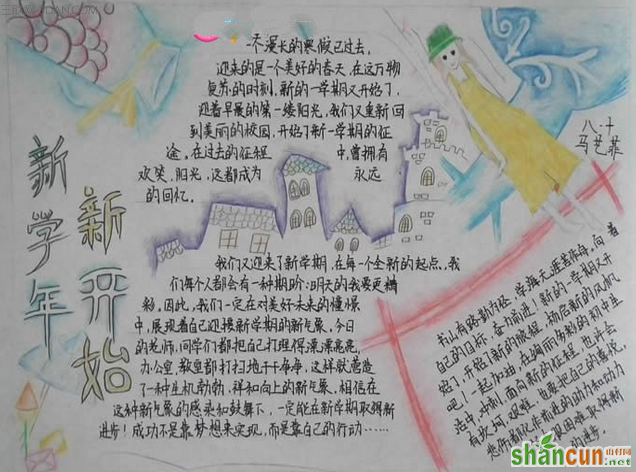 新学年
新开始
一个漫长的寒假已过去,
迎来的是一个美好的春天,在这万物
复苏的时刻,新的一学期又开始了,
迎着早晨的第一缕阳光,我们又重新回
到美丽的校园,开始了新一学期的征
途。在过去的征程中,曾拥有
欢笑,阳光,这都成为永远
的回忆。
八·十
马艺菲
我们又迎来了新学期,在每一个全新的起点,我
们每个人都会有一种期盼:明天的我要更精
彩。因此,我们一定在对美好未来的憧憬
中,展现着自己迎接新学期的新气象。今日
的老师,同学们都把自己打理得漂漂亮亮,
办公室,教室都打扫地干干净净,这样就营造
了一种生机勃勃,祥和向上的新气象。相信在
这种新气象的感染和鼓舞下,一定能在新学期取得新
进步!成功不是靠梦想来实现,而是靠自己的行动……
书山有路勤为径,学海无涯苦作舟,向着
自己的目标,奋力前进!新的一学期又开
始了,开始了新的旅程,扬起新的风帆
吧!一起加油,在绚丽多彩的初中生
活中,冲刺,面向新的征程,也许会
有坎坷,艰难,也要把自己的喜悦,
悲伤都化作前进的动力和动力
困难取得新
的进步。
shancun.net
山村网